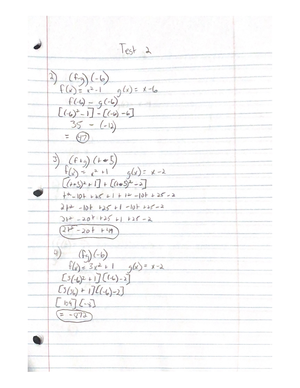 Test 2
2) (f-g)(-6)
f(x) = x²-1 g(x) = x-6
f(-6) - g(-6)
[(-6)²-1] - [(-6)-6]
35 - (-12)
= 47
3) (f+g)(t-5)
f(x) = x²+1 g(x) = x-2
[(t-5)²+1] + [(t-5)²-2]
t²-10t+25+1+t²-10t+25-2
2t²-10t+25+1-10t+25-2
2t²-20t+25+1+25-2
2t²-20t+49
4) (fg)(-6)
f(x) = 3x²+1 g(x) = x-2
[3(-6)²+1][(-6)-2]
[3(36)+1][(-6)-2]
[109][-8]
= -872